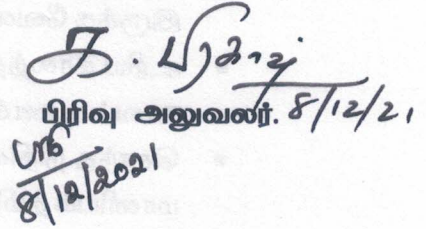 க. பிரகாஷ்
பிரிவு அலுவலர். 8/12/21
8/12/2021